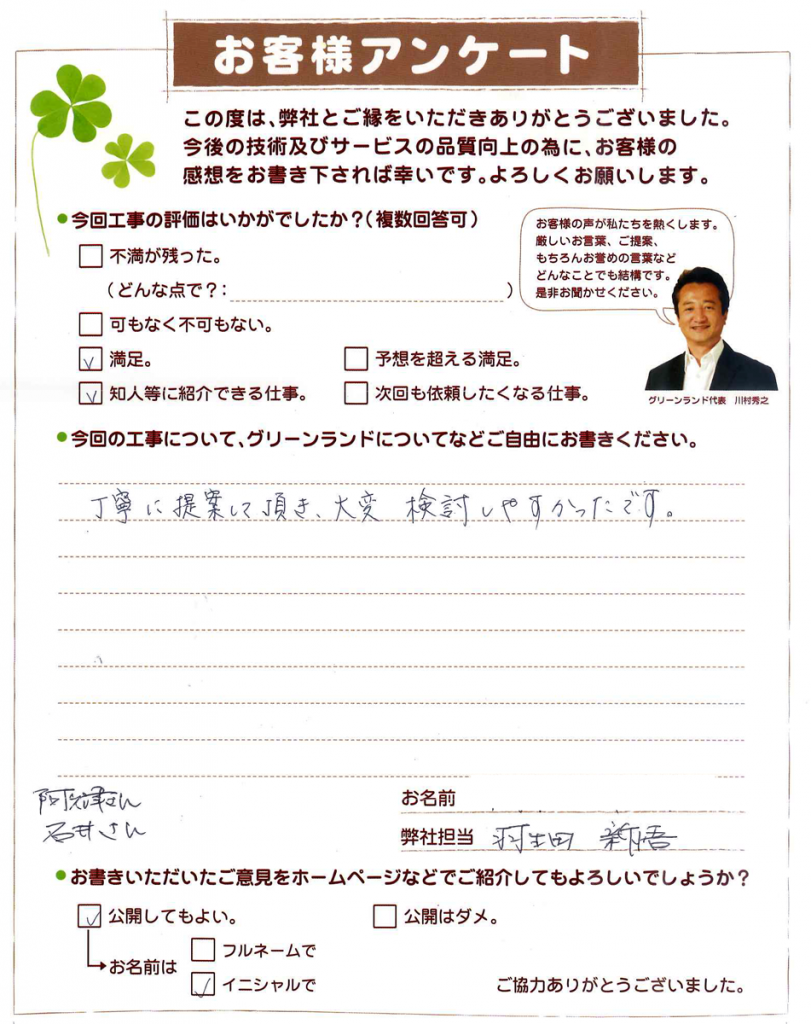 お客様アンケート
この度は、弊社とご縁をいただきありがとうございました。
今後の技術及びサービスの品質向上の為に、お客様の
感想をお書き下されば幸いです。よろしくお願いします。
●今回工事の評価はいかがでしたか？（複数回答可）
不満が残った。
（どんな点で？：）
可もなく不可もない。
満足。
予想を超える満足。
知人等に紹介できる仕事。
次回も依頼したくなる仕事。
お客様の声が私たちを熱くします。
厳しいお言葉、ご提案、
もちろんお誉めの言葉など
どんなことでも結構です。
是非お聞かせください。
グリーンランド代表　川村秀之
●今回の工事について、グリーンランドについてなどご自由にお書きください。
丁寧に提案して頂き、大変 検討しやすかったです。
阿久津さん
石井さん
お名前
弊社担当 羽生田 新悟
●お書きいただいたご意見をホームページなどでご紹介してもよろしいでしょうか？
公開してもよい。
公開はダメ。
お名前は
フルネームで
イニシャルで
ご協力ありがとうございました。